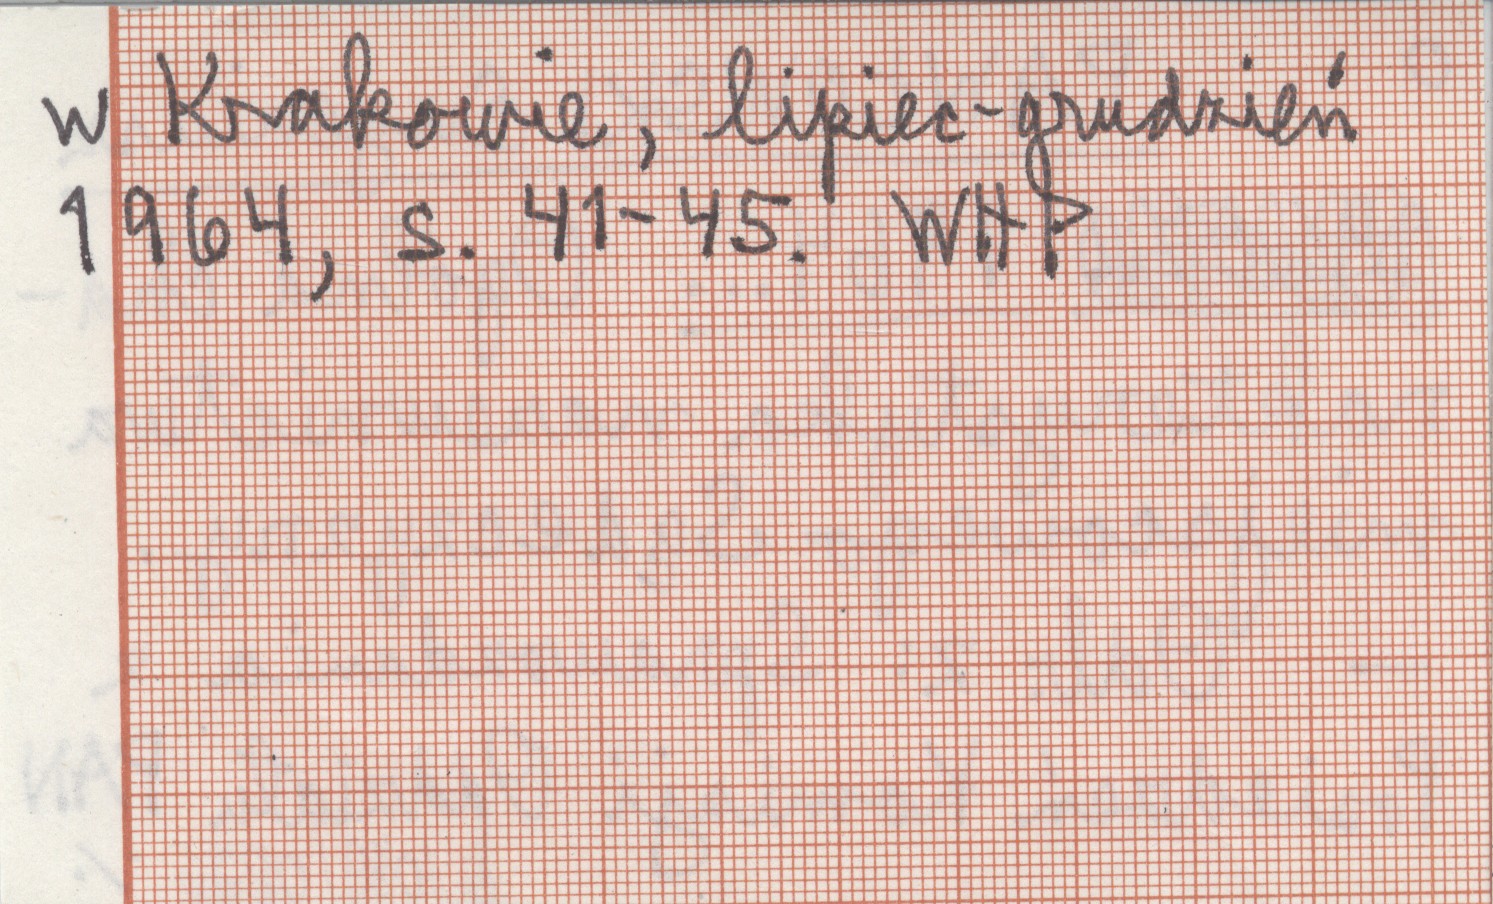 w Krakowie, lipiec-grudzień
1964, s. 41-45. WHP